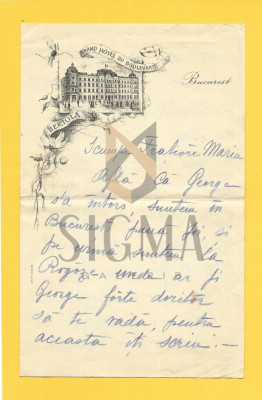 GRAND HÔTEL DU BOULEVARD
BERTOLA
Bucarest
Scumpa Maria
Află că George
s'a întors, suntem în
București până joi și
pe urmă suntem la
unde ar fi
George forte doritor
să te vadă, pentru
aceasta îți scriu. —
SIGMA